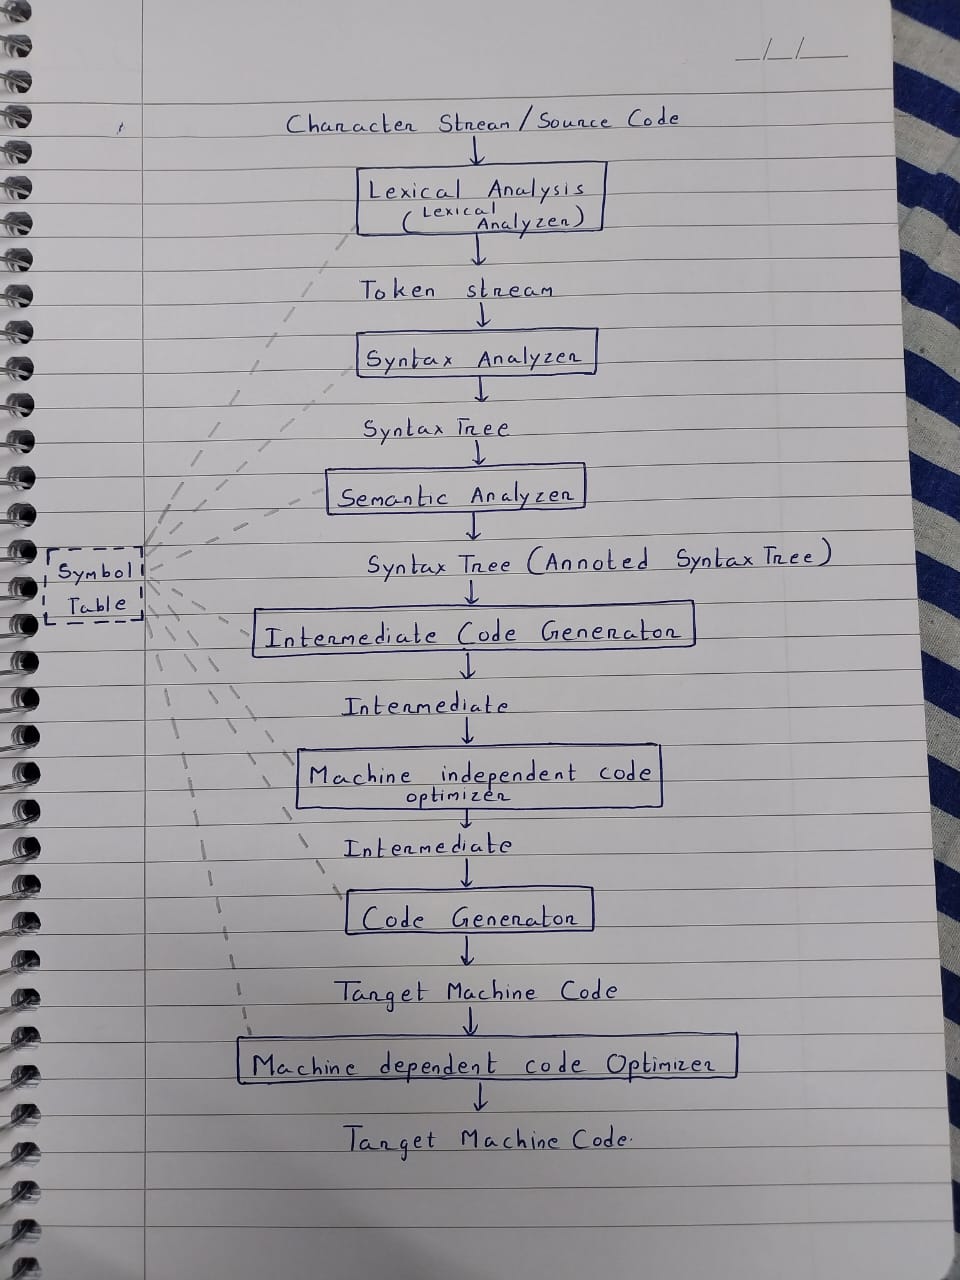 Character Stream / Source Code
Lexical Analysis
(Lexical
Analyzer)
Token stream
Syntax Analyzer
Syntax Tree
Semantic Analyzer
Syntax Tree (Annoted Syntax Tree)
Symbol
Table
Intermediate Code Generator
Intermediate
Machine independent code
optimizer
Intermediate
Code Generator
Target Machine Code
Machine dependent code Optimizer
Target Machine Code.